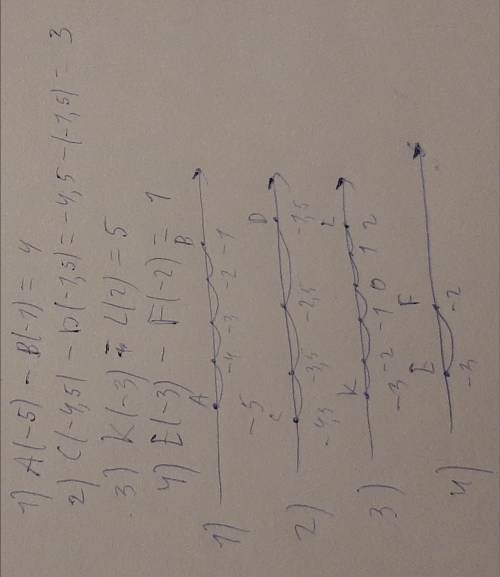 1) A(-5) - B(-1) = 4
2) C(-4,5) - D(-1,5) = -4,5 - (-1,5) = 3
3) K(-3) + L(2) = 5
4) E(-3) - F(-2) = 1
1) A B
-5 -4 -3 -2 -1
2) C D
-4,5 -3,5 -2,5 -1,5
3) K L
-3 -2 -1 0 1 2
4) E F
-3 -2